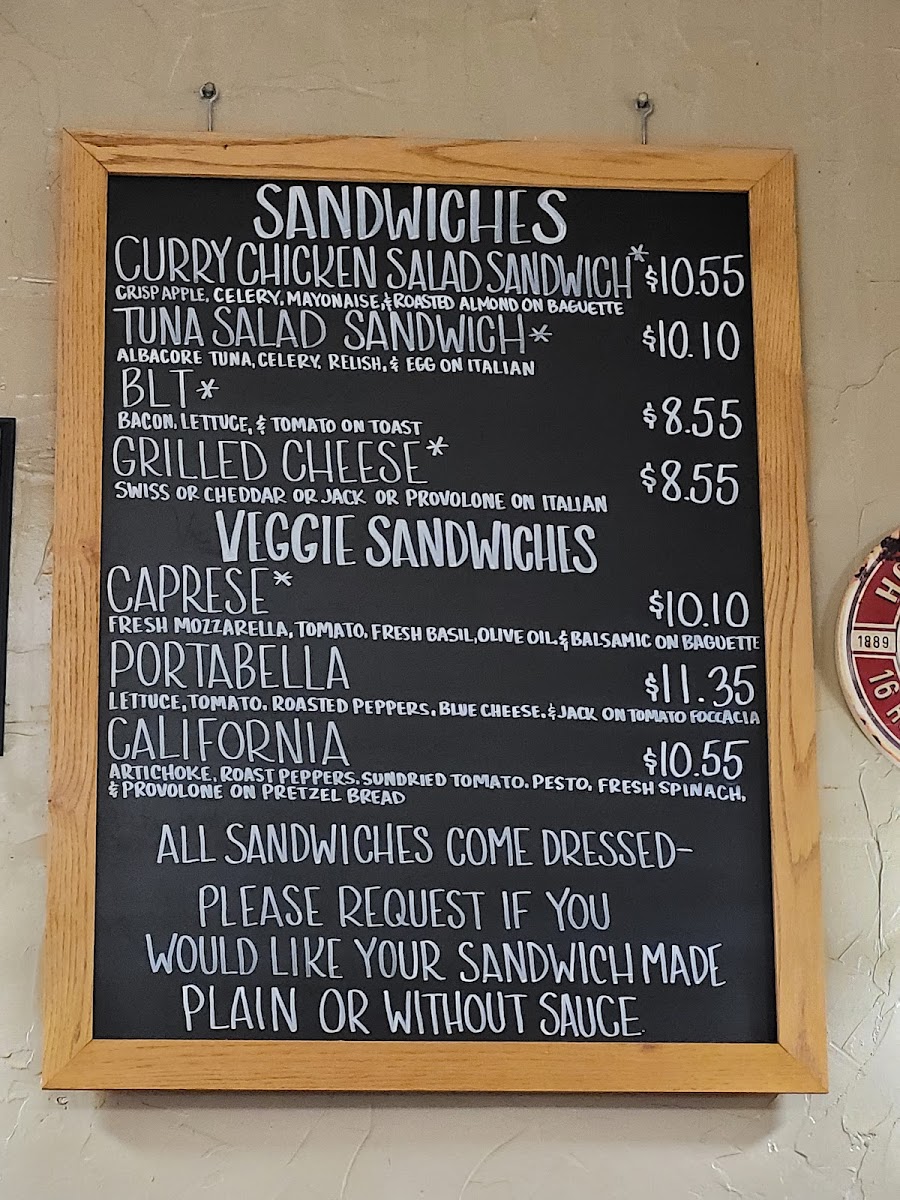 SANDWICHES
CURRY CHICKEN SALAD SANDWICH* $10.55
CRISP APPLE, CELERY, MAYONAISE, & ROASTED ALMOND ON BAGUETTE
TUNA SALAD SANDWICH* $10.10
ALBACORE TUNA, CELERY, RELISH, & EGG ON ITALIAN
BLT* $8.55
BACON, LETTUCE, & TOMATO ON TOAST
GRILLED CHEESE* $8.55
SWISS OR CHEDDAR OR JACK OR PROVOLONE ON ITALIAN
VEGGIE SANDWICHES
CAPRESE* $10.10
FRESH MOZZARELLA, TOMATO, FRESH BASIL, OLIVE OIL, & BALSAMIC ON BAGUETTE
PORTABELLA $11.35
LETTUCE, TOMATO, ROASTED PEPPERS, BLUE CHEESE, & JACK ON TOMATO FOCCACIA
CALIFORNIA $10.55
ARTICHOKE, ROAST PEPPERS, SUNDRIED TOMATO, PESTO, FRESH SPINACH,
& PROVOLONE ON PRETZEL BREAD
ALL SANDWICHES COME DRESSED-
PLEASE REQUEST IF YOU
WOULD LIKE YOUR SANDWICH MADE
PLAIN OR WITHOUT SAUCE.
1889
16